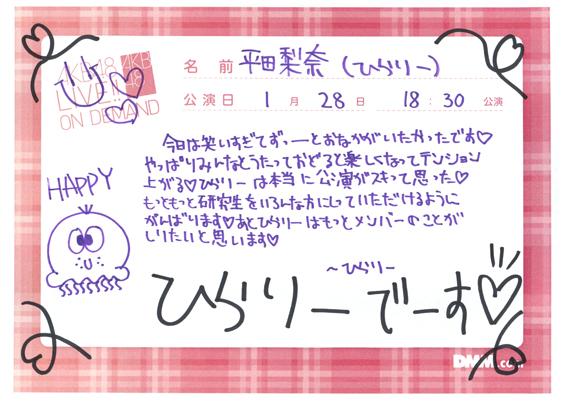 AKB48
LIVE!!
ON DEMAND
AKB48
名前 平田梨奈(ひらりー)
公演日 1月28日 18:30公演
今日は笑いすぎてずっーとおなかがいたかったです♡
やっぱりみんなとうたっておどると楽しくなってテンション
上がる♡ひらりーは本当に公演がスキって思った♡
もっともっと研究生をいろんな方にしていただけるように
がんばります♡あとひらりーはもっとメンバーのことが
しりたいと思います♡
〜ひらりー
HAPPY
ひらりーでーす♡
DMM.com